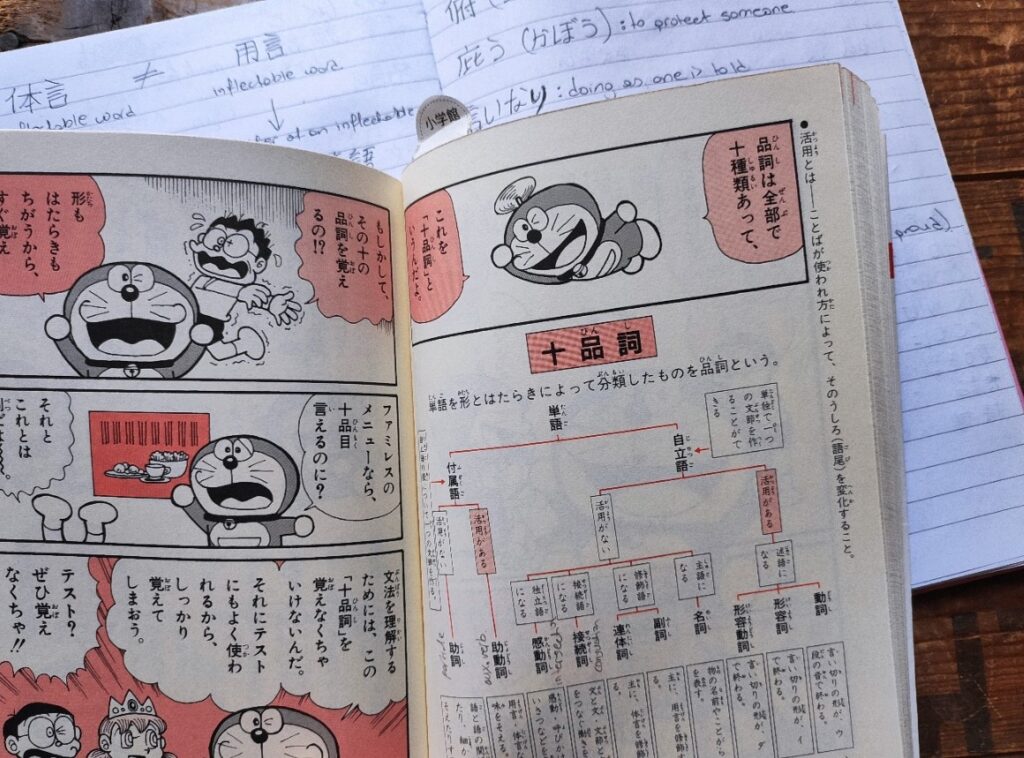 体言 ≠ 用言
inflectable word
庇う (かばう) : to protect someone
言いなり : doing as one is told
小学館
●活用とは――ことばが使われ方によって、そのうしろ(語尾)を変化すること。
品詞は全部で
十種類あって、
これを
「十品詞」と
いうんだよ。
十品詞
単語を形とはたらきによって分類したものを品詞という。
単語
自立語
単独で一つ
の文節を作
ることがで
きる
付属語
活用がある
活用がない
活用がある
活用がない
述語に
なる
主語に
なる
修飾語
になる
接続語
になる
独立語
になる
動詞
形容詞
形容動詞
名詞
副詞
連体詞
接続詞
感動詞
助動詞
助詞
aux. verb
particle
言い切りの形が、ウ
段の音で終わる。
言い切りの形が、イ
で終わる。
言い切りの形が、ダ
で終わる。
物の名前やことがら
を表す。
主に、用言を修飾す
る。
主に、体言を修飾す
る。
もしかして、
その十の
品詞を覚え
るの!?
形も
はたらきも
ちがうから、
すぐ覚え
ファミレスの
メニューなら、
十品目
言えるのに?
それと
これとは
文法を理解する
ためには、この
「十品詞」を
覚えなくちゃ
いけないんだ。
それにテスト
にもよく使わ
れるから、
しっかり
覚えて
しまおう。
テスト?
ぜひ覚え
なくちゃ!!